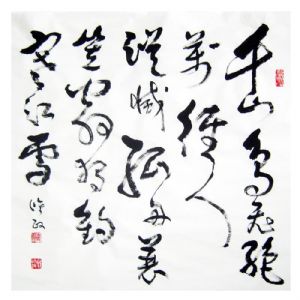 千山鳥飛絕
萬徑人
蹤滅孤舟蓑
笠翁獨釣
寒江雪